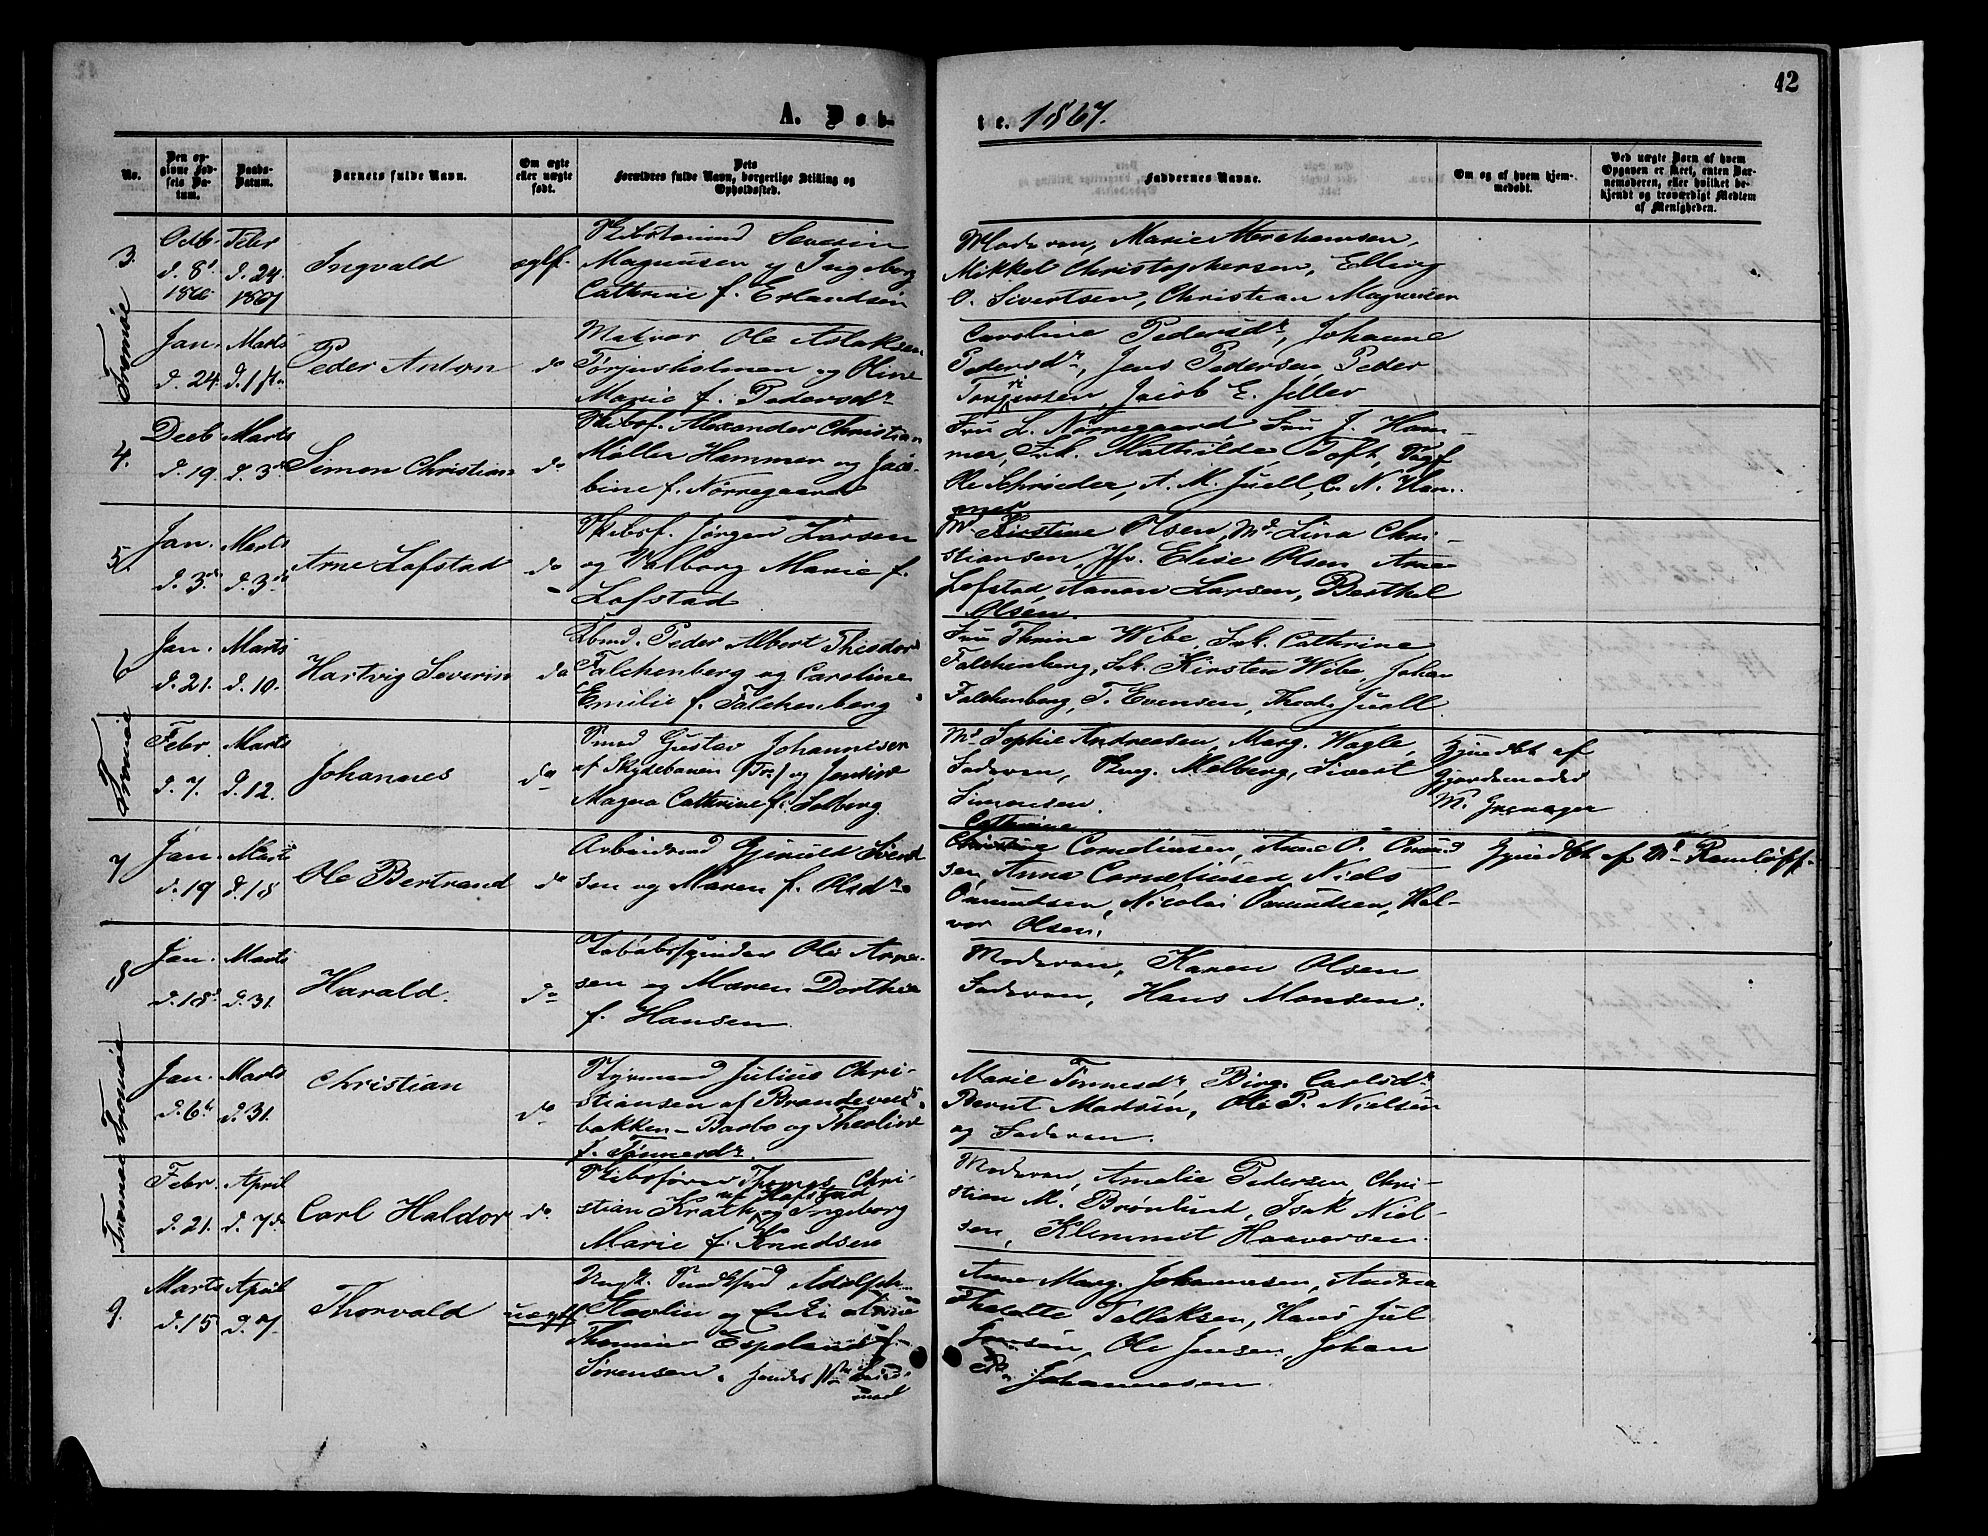 42
A. Døb-
te. 1867.
No.
Den op-
givne Fød-
sels Da-
tum.
Daabs-
Datum.
Barnets fulde Navn.
Om ægte
eller uægte
født.
Dets
Forældres fulde Navn, borgerlige Stilling og
Opholdssted.
Faddernes Navne.
Om og af hvem hjem-
medøbt.
Ved uægte Børn af hvem
Opgaven er skeet, enten Bar-
nemoderen, eller hvilket be-
kjendt og troværdigt Medlem
af Menigheden.
3.
d. 8d
d. 24.
1867
Ingvald
Severin
Magnusen og Ingeborg
Cathrine f. Erlandsen
Moderen, Marie
Mikkel Christophersen, Elling
O. Sivertsen, Christian Magnusen
Tromøe
Jan. Marts
d. 24. d. 1ste
Peder Anton
do
Ole Aslaksen
Torjusholmen og Oline
Marie f. Pedersdr
Caroline Pedersdr, Johanne
Pedersdr, Jens Pedersen Peder
Jacob E. Jeller
4.
Decb Marts
d. 19. d. 3d
Simon Christian
do
Skibsf. Alexander Christian
Møller Hammer og Jaco-
bine f. Nørregaard
Fru L. Nørregaard Fru J. Ham-
mer, Frk. Mathilde Toft,
Ole Schrøder, A. M. Juell, C. N. Ham-
mer
5.
Jan. Marts
d. 3d d. 3d
Arne Lofstad
do
Skibsf. Jørgen Larsen
og Valborg Marie f.
Lofstad
Md Kirstine Olsen, Md Lina Chri-
stiansen, Jfr. Elise Olsen Arne
Lofstad, Aanon Larsen, Berthel
Olsen
6
Jan. Marts
d. 21. d. 10.
Hartvig Severin
do
Peder Albert Theodor
Falchenberg og Caroline
Emilie f. Falchenberg
Fru Thrine Wibe, Frk. Cathrine
Falchenberg, Frk. Kirsten Wibe, Johan
Falchenberg, T. Evensen, Theod. Juell.
Tromøe
Febr. Marts
d. 7. d. 12.
Johannes
do
Smed Gustav Johannesen
og Jensine
Magna Cathrine f. Solberg.
Md Sophie Andreasen, Marg. Wagle,
Faderen, Melberg, Sivert
Simonsen
Hjmdbt af
Gjordemoder
7
Jan. Marts
d. 19 d. 18
Ole Bertrand
do
Arbeidsmd Gjeruld
sen og Maren f. Olsdr
Cathrine
Christine Corneliusen, Anne O.
sen, Anna Corneliusen Niels
Osmundsen, Nicolai Osmundsen, Hal-
vor Olsen.
Hjmdbt af Md Ramløff.
8
Jan. Marts
d. 18d d. 31.
Harald.
do
Ole Arne-
sen og Maren Dorthea
f. Hansen
Moderen, Karen Olsen
Faderen, Hans Monsen.
Tromøe
Jan. Marts
d. 6te d. 31.
Christian
do
Styrmand Julius Chri-
stiansen af
bakken – Barbo og Theoline
f. Tønnesdr.
Marie Tønnesdr, Birg. Carlsdr
Bernt Madsen, Ole P. Nielsen
og Faderen.
Tromøe
Febr. April
d. 21. d. 7d
Carl Haldor
do
Skibsfører Thomas Chri-
af Hofstad
stian Krath og Ingeborg
Marie f. Knudsen
Moderen, Amalie Pedersen Chri-
stian M. Brønlund, Isak Niel-
sen, Klemmet Haaversen.
9.
Marts April
d. 15 d. 7
Thorvald
uægtf.
Adolph
og Enke Anne
Thomine Espeland f.
Sørensen.
Anne Marg. Johannesen, Andrea
Tellefsen, Hans Jul
Jensen, Ole Jensen, Johan
Johannesen.